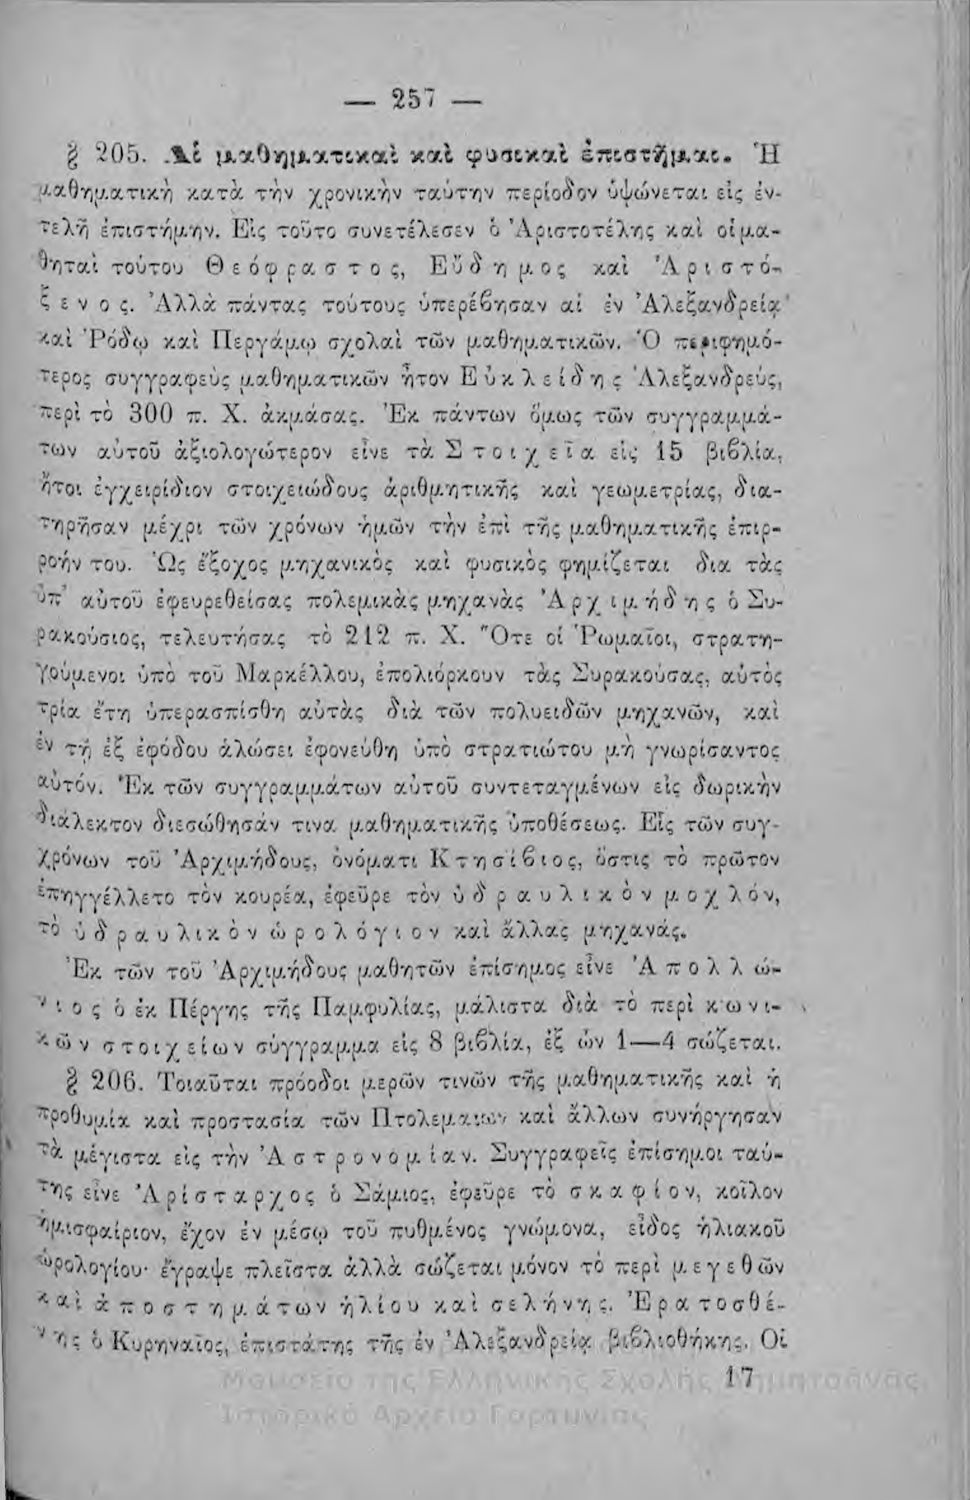 — 257 —
§ 205. Αἱ μαθηματικαὶ καὶ φυσικαὶ ἐπιστῆμαι. Ἡ
μαθηματικὴ κατὰ τὴν χρονικὴν ταύτην περίοδον ὑψώνεται εἰς ἐν-
τελῆ ἐπιστήμην. Εἰς τοῦτο συνετέλεσεν ὁ Ἀριστοτέλης καὶ οἱ μα-
θηταὶ τούτου Θεόφραστος, Εὔδημος καὶ Ἀριστό-
ξενος. Ἀλλὰ πάντας τούτους ὑπερέβησαν αἱ ἐν Ἀλεξανδρείᾳ
καὶ Ῥόδῳ καὶ Περγάμῳ σχολαὶ τῶν μαθηματικῶν. Ὁ περιφημό-
τερος συγγραφεὺς μαθηματικῶν ἦτον Εὐκλείδης Ἀλεξανδρεύς,
περὶ τὸ 300 π. Χ. ἀκμάσας. Ἐκ πάντων ὅμως τῶν συγγραμμά-
των αὐτοῦ ἀξιολογώτερον εἶνε τὰ Στοιχεῖα εἰς 15 βιβλία,
ἤτοι ἐγχειρίδιον στοιχειώδους ἀριθμητικῆς καὶ γεωμετρίας, δια-
τηρῆσαν μέχρι τῶν χρόνων ἡμῶν τὴν ἐπὶ τῆς μαθηματικῆς ἐπιρ-
ροήν του. Ὡς ἔξοχος μηχανικὸς καὶ φυσικὸς φημίζεται δια τὰς
ὑπ' αὐτοῦ ἐφευρεθείσας πολεμικὰς μηχανὰς Ἀρχιμήδης ὁ Συ-
ρακούσιος, τελευτήσας τὸ 212 π. Χ. Ὅτε οἱ Ῥωμαῖοι, στρατη-
γούμενοι ὑπὸ τοῦ Μαρκέλλου, ἐπολιόρκουν τὰς Συρακούσας, αὐτὸς
τρία ἔτη ὑπερασπίσθη αὐτὰς διὰ τῶν πολυειδῶν μηχανῶν, καὶ
ἐν τῇ ἐξ ἐφόδου ἁλώσει ἐφονεύθη ὑπὸ στρατιώτου μὴ γνωρίσαντος
αὐτόν. Ἐκ τῶν συγγραμμάτων αὐτοῦ συντεταγμένων εἰς δωρικὴν
διάλεκτον διεσώθησάν τινα μαθηματικῆς ὑποθέσεως. Εἷς τῶν συγ-
χρόνων τοῦ Ἀρχιμήδους, ὀνόματι Κτησίβιος, ὅστις τὸ πρῶτον
ἐπηγγέλλετο τὸν κουρέα, ἐφεῦρε τὸν ὑδραυλικὸν μοχλόν,
τὸ ὑδραυλικὸν ὡρολόγιον καὶ ἄλλας μηχανάς.
Ἐκ τῶν τοῦ Ἀρχιμήδους μαθητῶν ἐπίσημος εἶνε Ἀπολλώ-
νιος ὁ ἐκ Πέργης τῆς Παμφυλίας, μάλιστα διὰ τὸ περὶ κωνι-
κῶν στοιχείων σύγγραμμα εἰς 8 βιβλία, ἐξ ὧν 1—4 σώζεται.
§ 206. Τοιαῦται πρόοδοι μερῶν τινῶν τῆς μαθηματικῆς καὶ ἡ
προθυμία καὶ προστασία τῶν Πτολεμαίων καὶ ἄλλων συνήργησαν
τὰ μέγιστα εἰς τὴν Ἀστρονομίαν. Συγγραφεῖς ἐπίσημοι ταύ-
της εἶνε Ἀρίσταρχος ὁ Σάμιος, ἐφεῦρε τὸ σκαφίον, κοῖλον
ἡμισφαίριον, ἔχον ἐν μέσῳ τοῦ πυθμένος γνώμονα, εἶδος ἡλιακοῦ
ὡρολογίου· ἔγραψε πλεῖστα ἀλλὰ σώζεται μόνον τὸ περὶ μεγεθῶν
καὶ ἀποστημάτων ἡλίου καὶ σελήνης. Ἐρατοσθέ-
νης ὁ Κυρηναῖος, ἐπιστάτης τῆς ἐν Ἀλεξανδρείᾳ βιβλιοθήκης. Οἱ
17
Μουσείο της Ελληνικής Σχολής Δημητσάνας
Ιστορικό Αρχείο Γορτυνίας